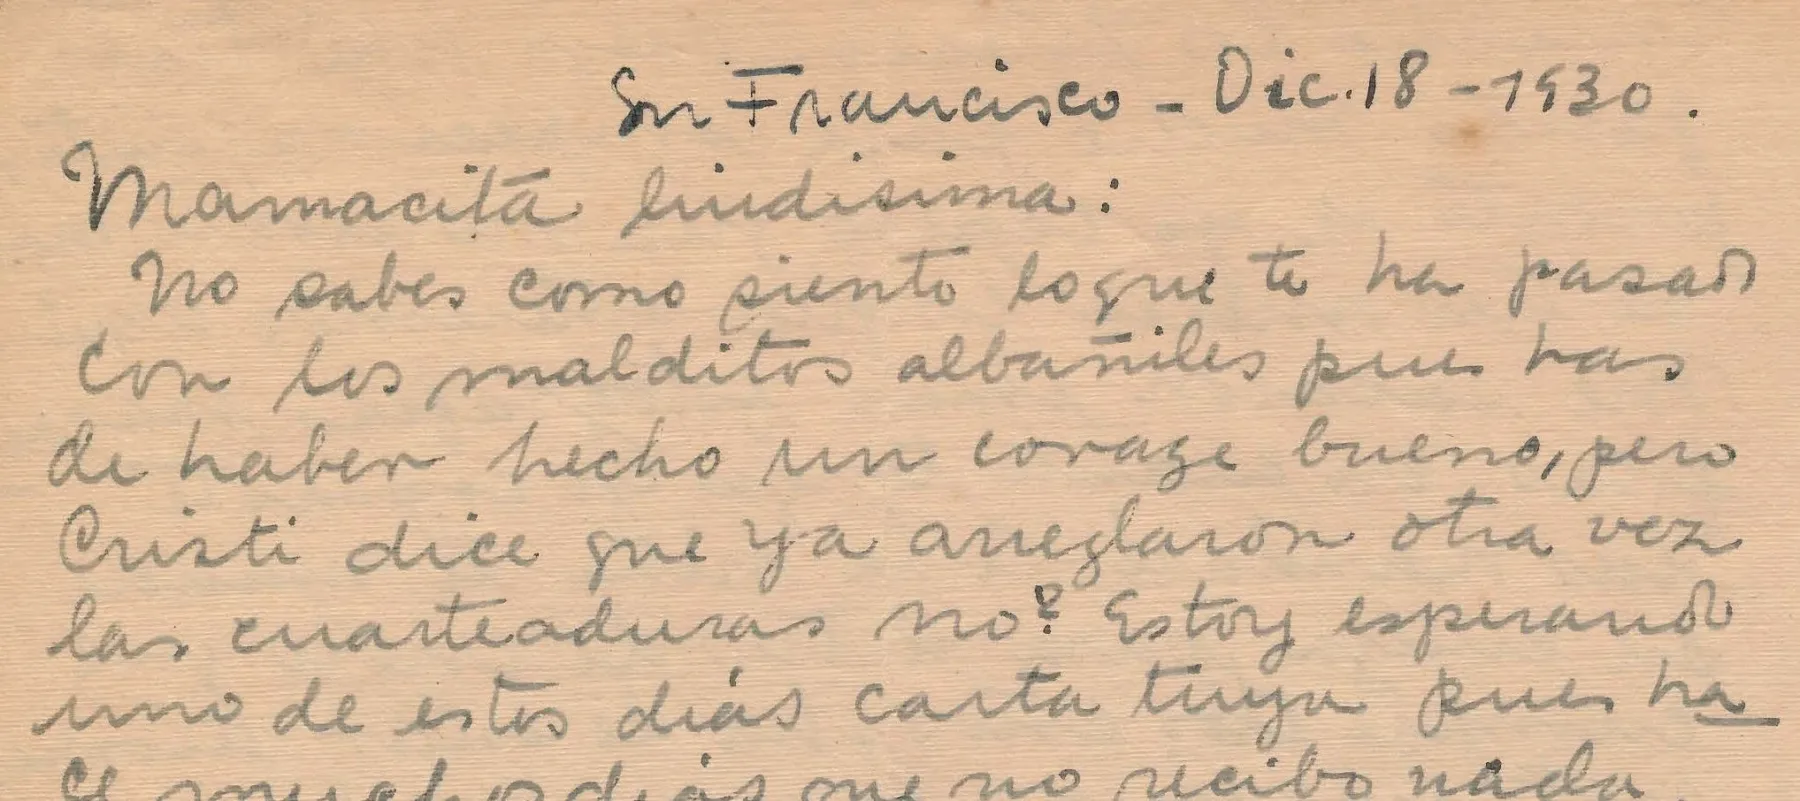 Sn Francisco - Dic. 18 - 1930.
Mamacita lindisima:
No sabes como siento loque te ha pasado
con los malditos albañiles pues has
de haber hecho un corage bueno, pero
Cristi dice que ya arreglaron otra vez
las cuarteaduras no? Estoy esperando
uno de estos dias carta tuya pues ha
ce muchos dias que no recibo nada.